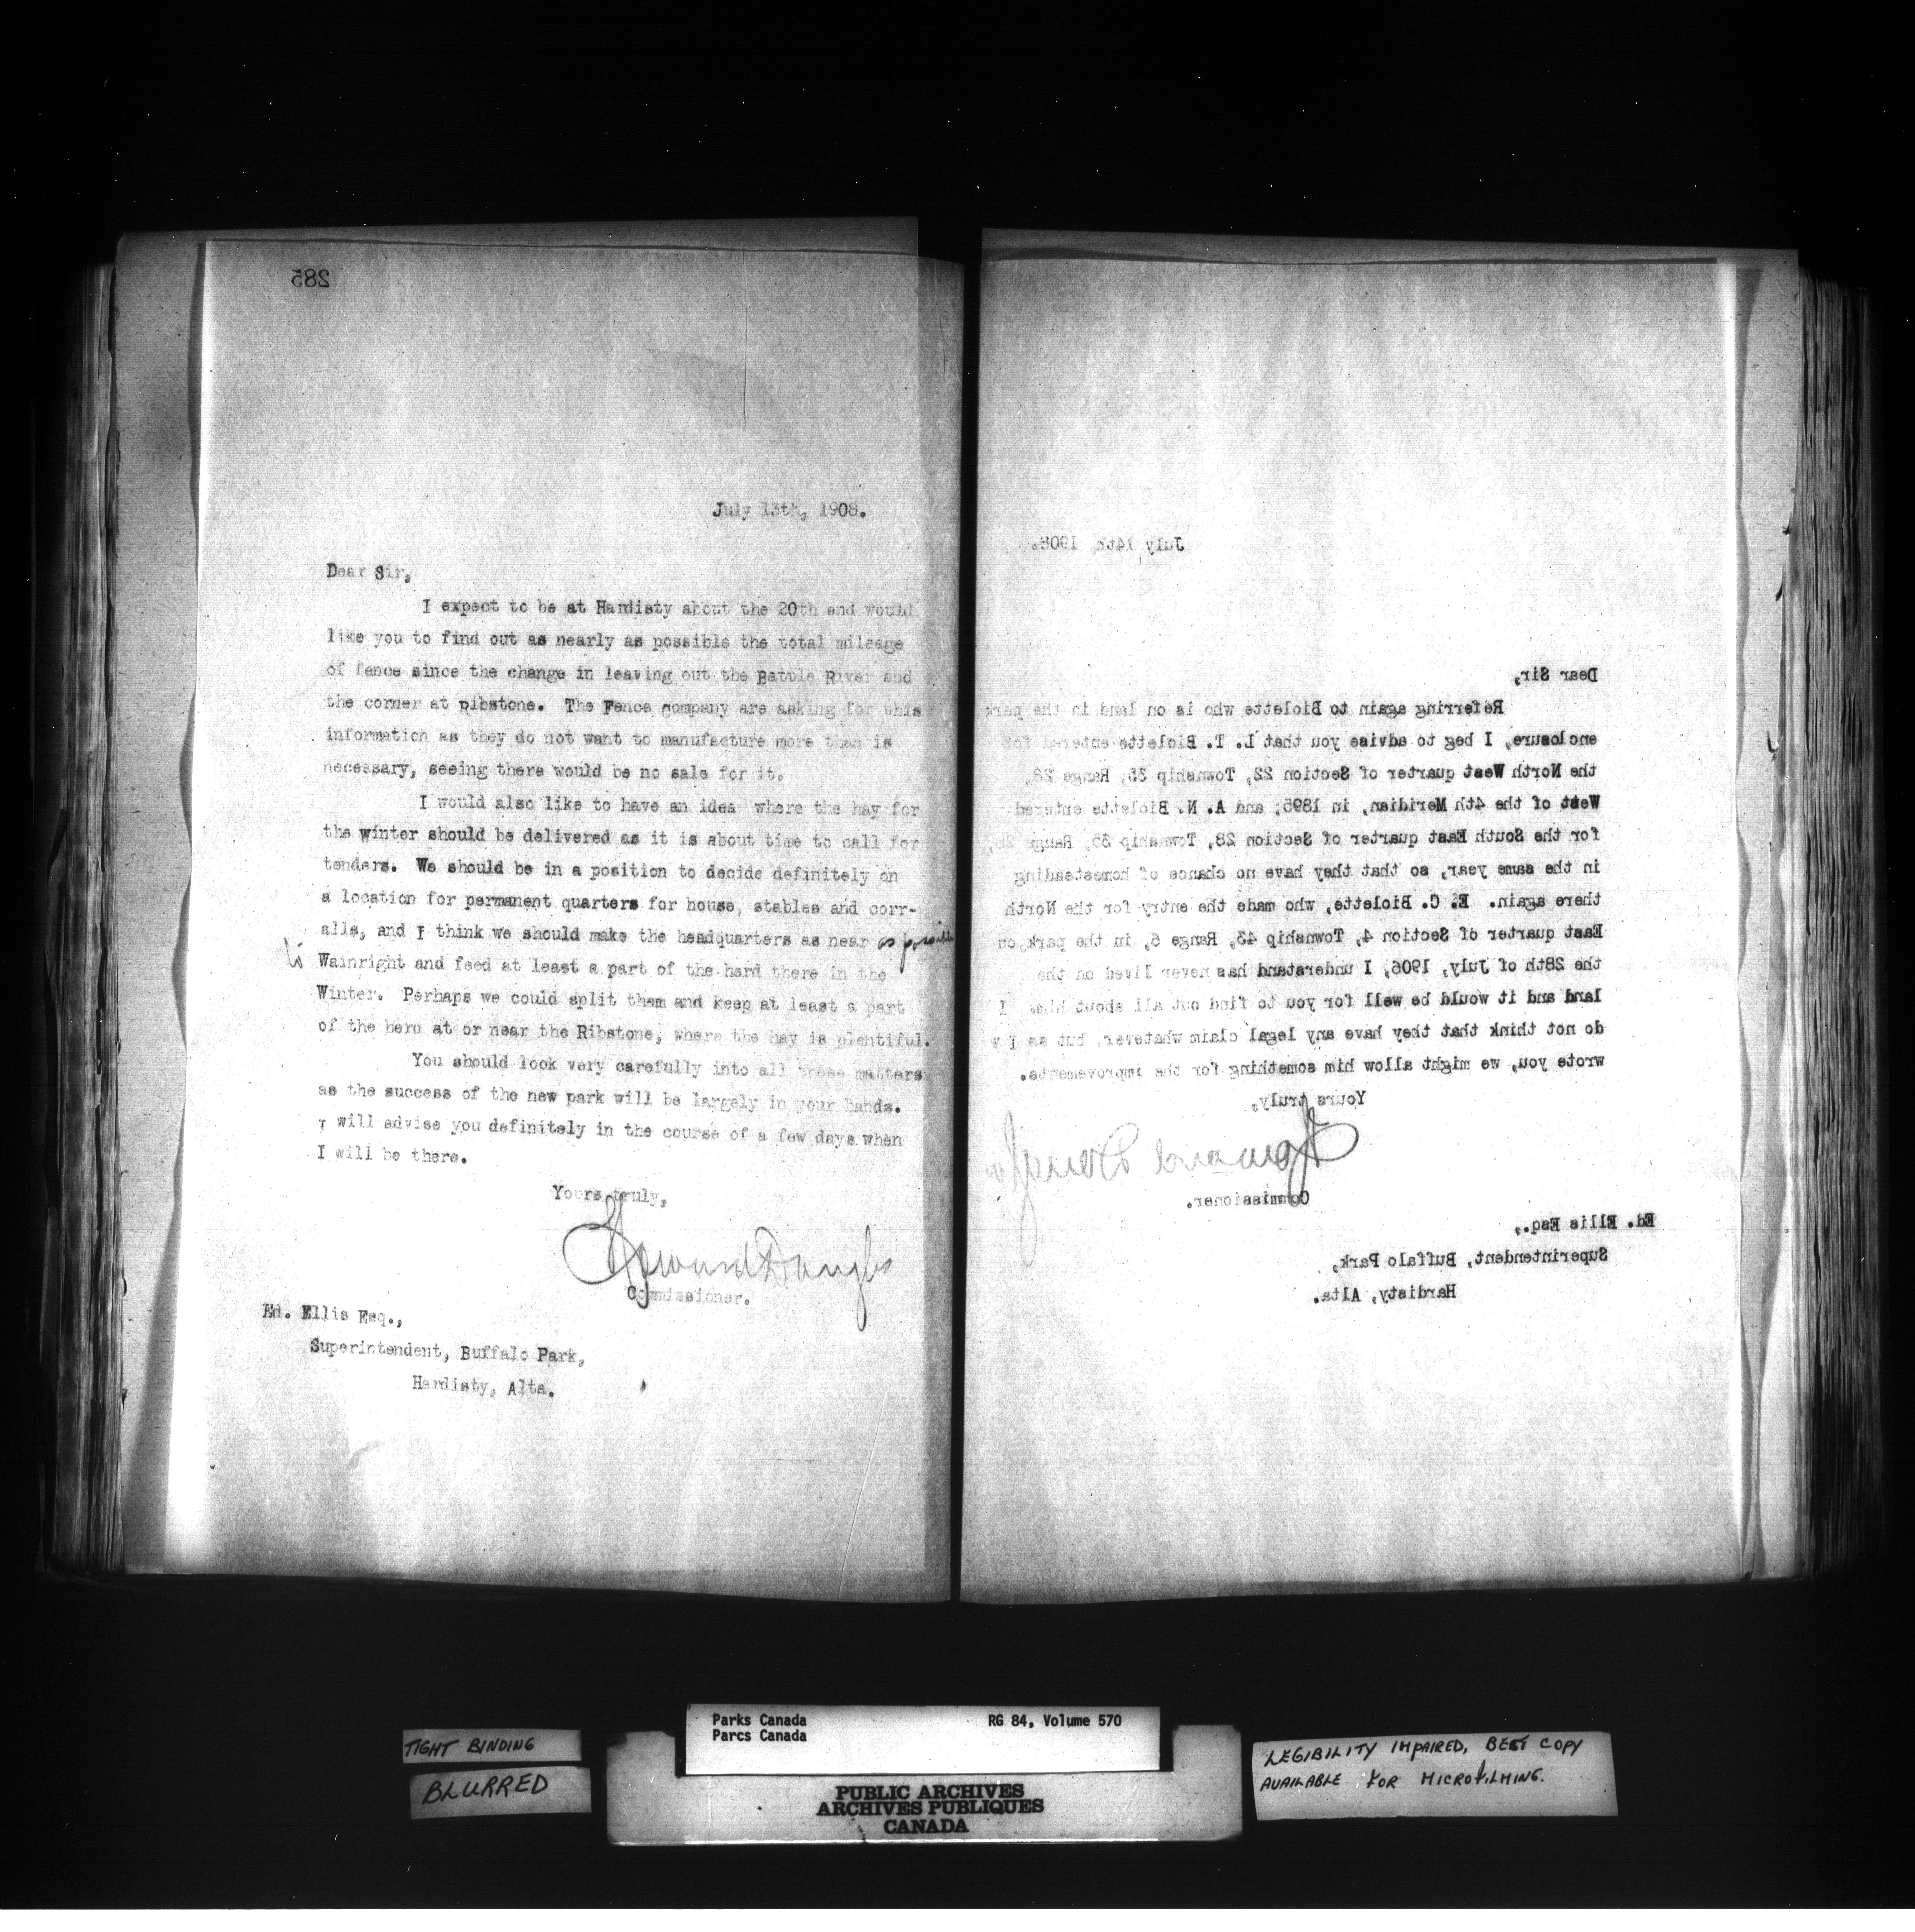 285
July 13th, 1908.
Dear Sir,
I expect to be at Hardisty about the 20th and would
like you to find out as nearly as possible the total mileage
of fence since the change in leaving out the Battle River and
the corner at Ribstone. The Fence company are asking for this
information as they do not want to manufacture more than is
necessary, seeing there would be no sale for it.
I would also like to have an idea where the hay for
the winter should be delivered as it is about time to call for
tenders. We should be in a position to decide definitely on
a location for permanent quarters for house, stables and corr-
alls, and I think we should make the headquarters as near as possible
to Wainright and feed at least a part of the herd there in the
Winter. Perhaps we could split them and keep at least a part
of the herd at or near the Ribstone, where the hay is plentiful.
You should look very carefully into all these matters
as the success of the new park will be largely in your hands.
I will advise you definitely in the course of a few days when
I will be there.
Yours truly,
Howard Douglas
Commissioner.
Ed. Ellis Esq.,
Superintendent, Buffalo Park,
Hardisty, Alta.
July 14th, 1908.
Dear Sir,
Referring again to Biolette who is on land in the park
enclosure, I beg to advise you that L. T. Biolette entered for
the North West quarter of Section 22, Township 35, Range 28,
West of the 4th Meridian, in 1895; and A. N. Biolette entered
for the South East quarter of Section 28, Township 35, Range
in the same year, so that they have no chance of homesteading
there again. E. C. Biolette, who made the entry for the North
East quarter of Section 4, Township 43, Range 6, in the park on
the 28th of July, 1906, I understand has never lived on the
land and it would be well for you to find out all about him. I
do not think that they have any legal claim whatever, but as I
wrote you, we might allow him something for the improvements.
Yours truly,
Howard Douglas
Commissioner.
Ed. Ellis Esq.,
Superintendent, Buffalo Park,
Hardisty, Alta.
TIGHT BINDING
BLURRED
Parks Canada RG 84, Volume 570
Parcs Canada
PUBLIC ARCHIVES
ARCHIVES PUBLIQUES
CANADA
LEGIBILITY IMPAIRED, BEST COPY
AVAILABLE FOR MICROFILMING.